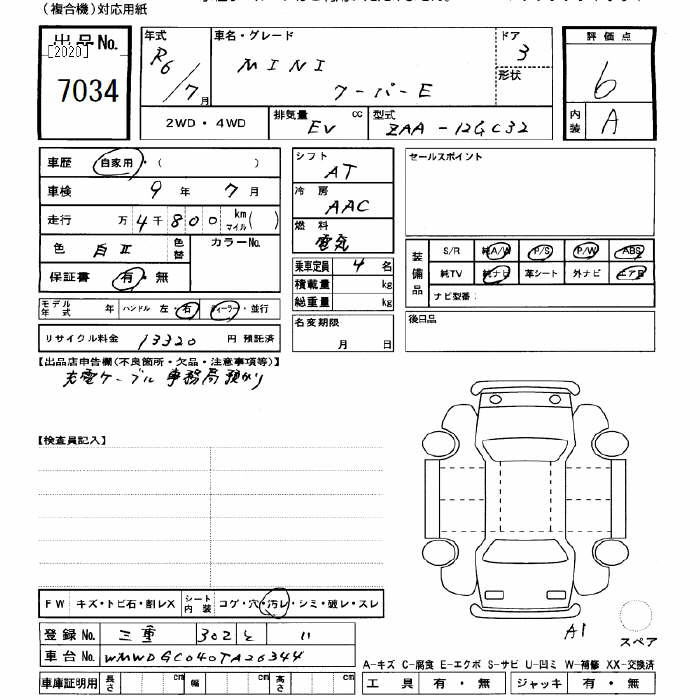 (複合機)対応用紙
出品No.
[2020]
7034
年式 R6/7月
車名・グレード MINI クーパーE
ドア 3
形状
評価点 6
内装 A
2WD・4WD
排気量 EV cc
型式 ZAA-12GC32
車歴 自家用・( )
車検 9年 7月
走行 万4千800 km マイル( )
色 白II 色替 カラーNo.
保証書 有・無
モデル年式 年 ハンドル 左・右 ディーラー・並行
リサイクル料金 13320 円 預託済
シフト AT
冷房 AAC
燃料 電気
乗車定員 4名
積載量 kg
総重量 kg
名変期限 月 日
セールスポイント
装備品 S/R 純A/W P/S P/W ABS
純TV 純ナビ 革シート 外ナビ エアB
ナビ型番:
後日品
【出品店申告欄(不良箇所・欠品・注意事項等)】
充電ケーブル 事務局預かり
【検査員記入】
FW キズ・トビ石・割レX シート内装 コゲ・穴・汚レ・シミ・破レ・スレ
登録No. 三重 302 と 11
車台No. WMWDGC040TA26344
車庫証明用 長さ cm 幅 cm 高さ cm
A1
スペア
A-キズ C-腐食 E-エクボ S-サビ U-凹ミ W-補修 XX-交換済
工具 有・無 ジャッキ 有・無